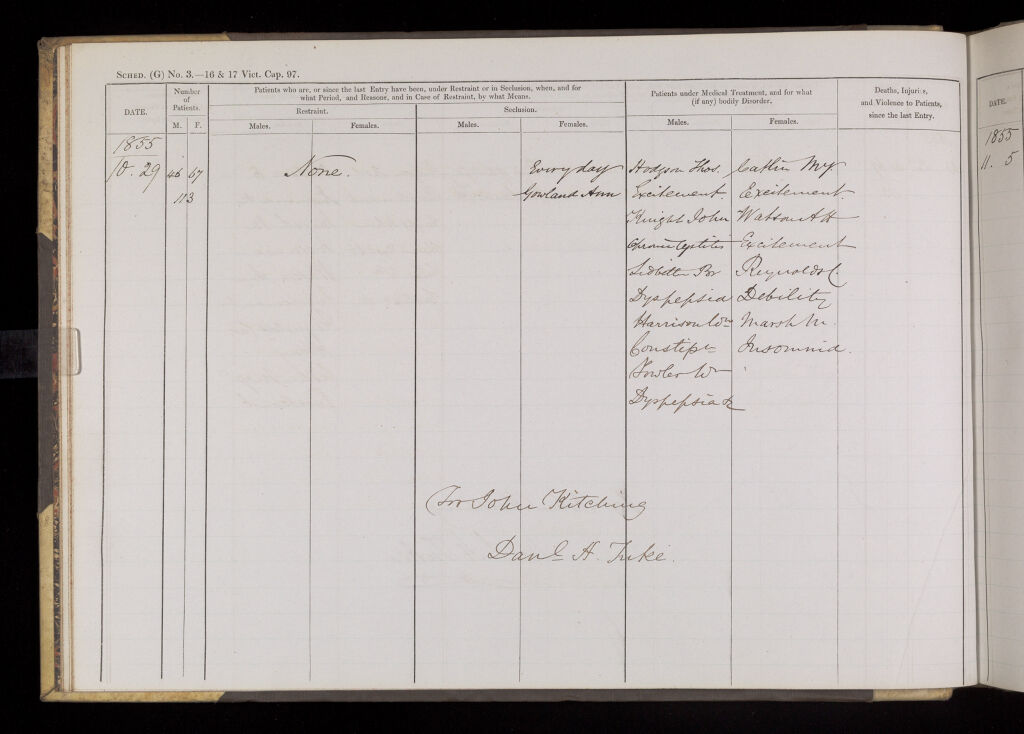 SCHED. (G) No. 3.—16 & 17 Vict. Cap. 97.
DATE.
Number of Patients.
M. F.
Patients who are, or since the last Entry have been, under Restraint or in Seclusion, when, and for
what Period, and Reasons, and in Case of Restraint, by what Means.
Restraint.
Males. Females.
Seclusion.
Males. Females.
Patients under Medical Treatment, and for what
(if any) bodily Disorder.
Males. Females.
Deaths, Injuries,
and Violence to Patients,
since the last Entry.
1855
10. 29 46 67 None. Every day Hodgson Thos. Catlin My.
113 Gowland Ann Excitement. Excitement.
Knight John Watson A H
Excitement
Sidbetter Reynolds C.
Dyspepsia Debility
Harrison Wm Marsh M.
Constipn Insomnia.
Fowler Wm
Dyspepsia &
For John Kitching
Danl. H. Tuke.
DATE.
1855
11. 5